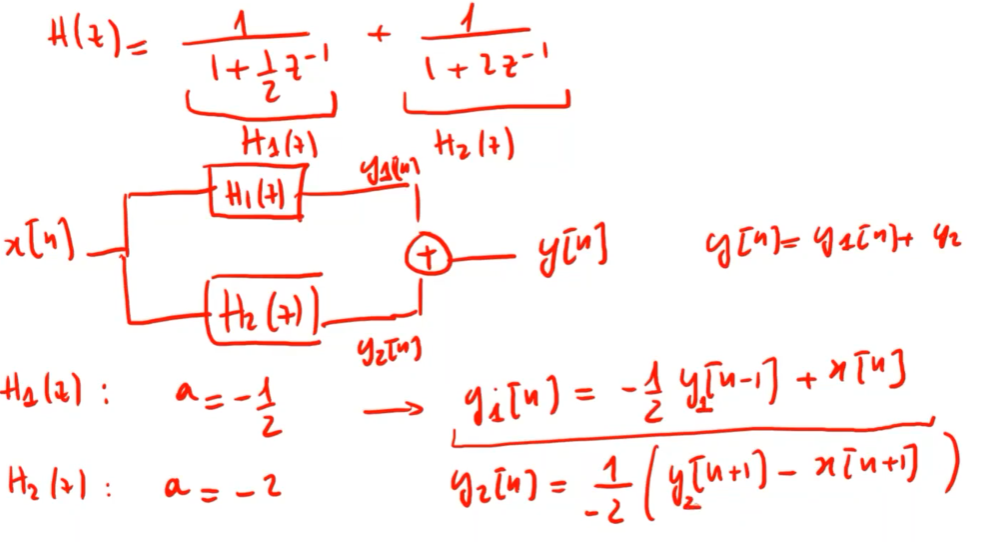 H(z) = 1/(1 + 1/2 z⁻¹) + 1/(1 + 2z⁻¹)
H₁(z) H₂(z)
H₁(z) y₁[n]
x[n] + y[n] y[n] = y₁[n] + y₂
H₂(z) y₂[n]
H₁(z) : a = -1/2 → y₁[n] = -1/2 y₁[n-1] + x[n]
H₂(z) : a = -2 y₂[n] = 1/-2 ( y₂[n+1] - x[n+1] )